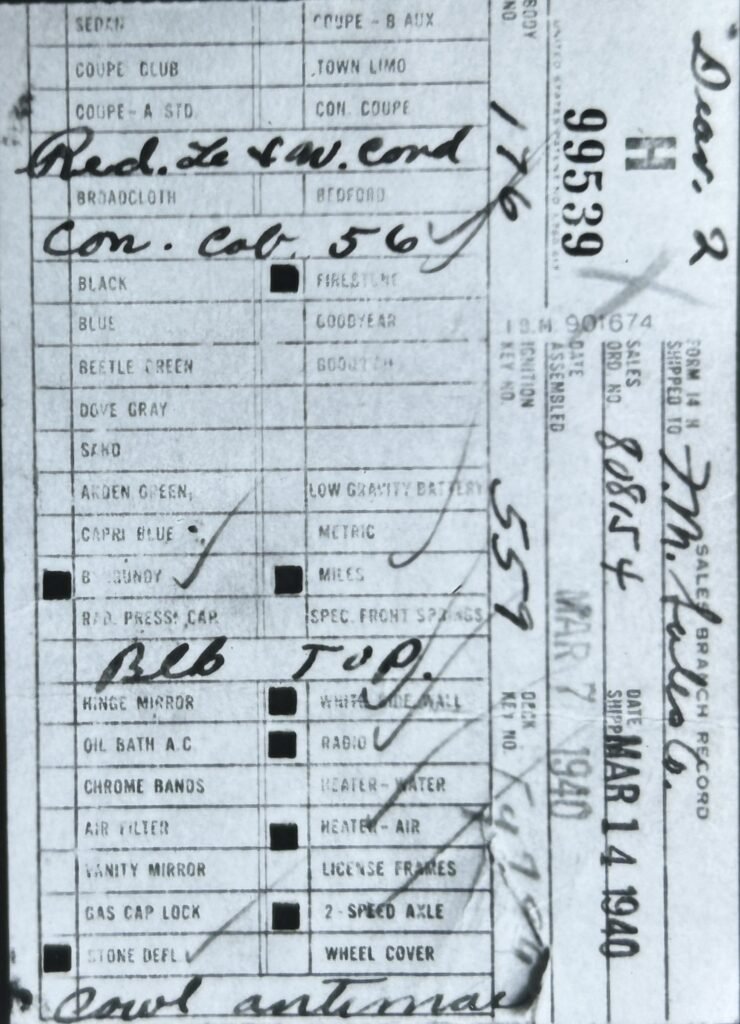 SEDAN COUPE - B AUX
COUPE CLUB TOWN LIMO
COUPE - A STD CON. COUPE
Red. Le & W. Cord
BROADCLOTH BEDFORD
Con. Cab. 56
BLACK FIRESTONE
BLUE GOODYEAR
BEETLE GREEN
DOVE GRAY
SAND
ARDEN GREEN LOW GRAVITY BATTERY
CAPRI BLUE METRIC
BURGUNDY MILES
RAD. PRESS. CAP. SPEC. FRONT SPRINGS
Blk TOP.
HINGE MIRROR WHITE SIDE WALL
OIL BATH A.C. RADIO
CHROME BANDS HEATER - WATER
AIR FILTER HEATER - AIR
VANITY MIRROR LICENSE FRAMES
GAS CAP LOCK 2 - SPEED AXLE
STONE DEFL. WHEEL COVER
Cowl antinnae
BODY NO. 176
IGNITION KEY NO. 559
DECK KEY NO.
99539
H
I.B.M. 901674
DATE ASSEMBLED MAR 7 1940
SALES ORD. NO. 808154
DATE SHIPPED MAR 14 1940
FORM 14 H SALES BRANCH RECORD
SHIPPED TO
Sales Co.
2